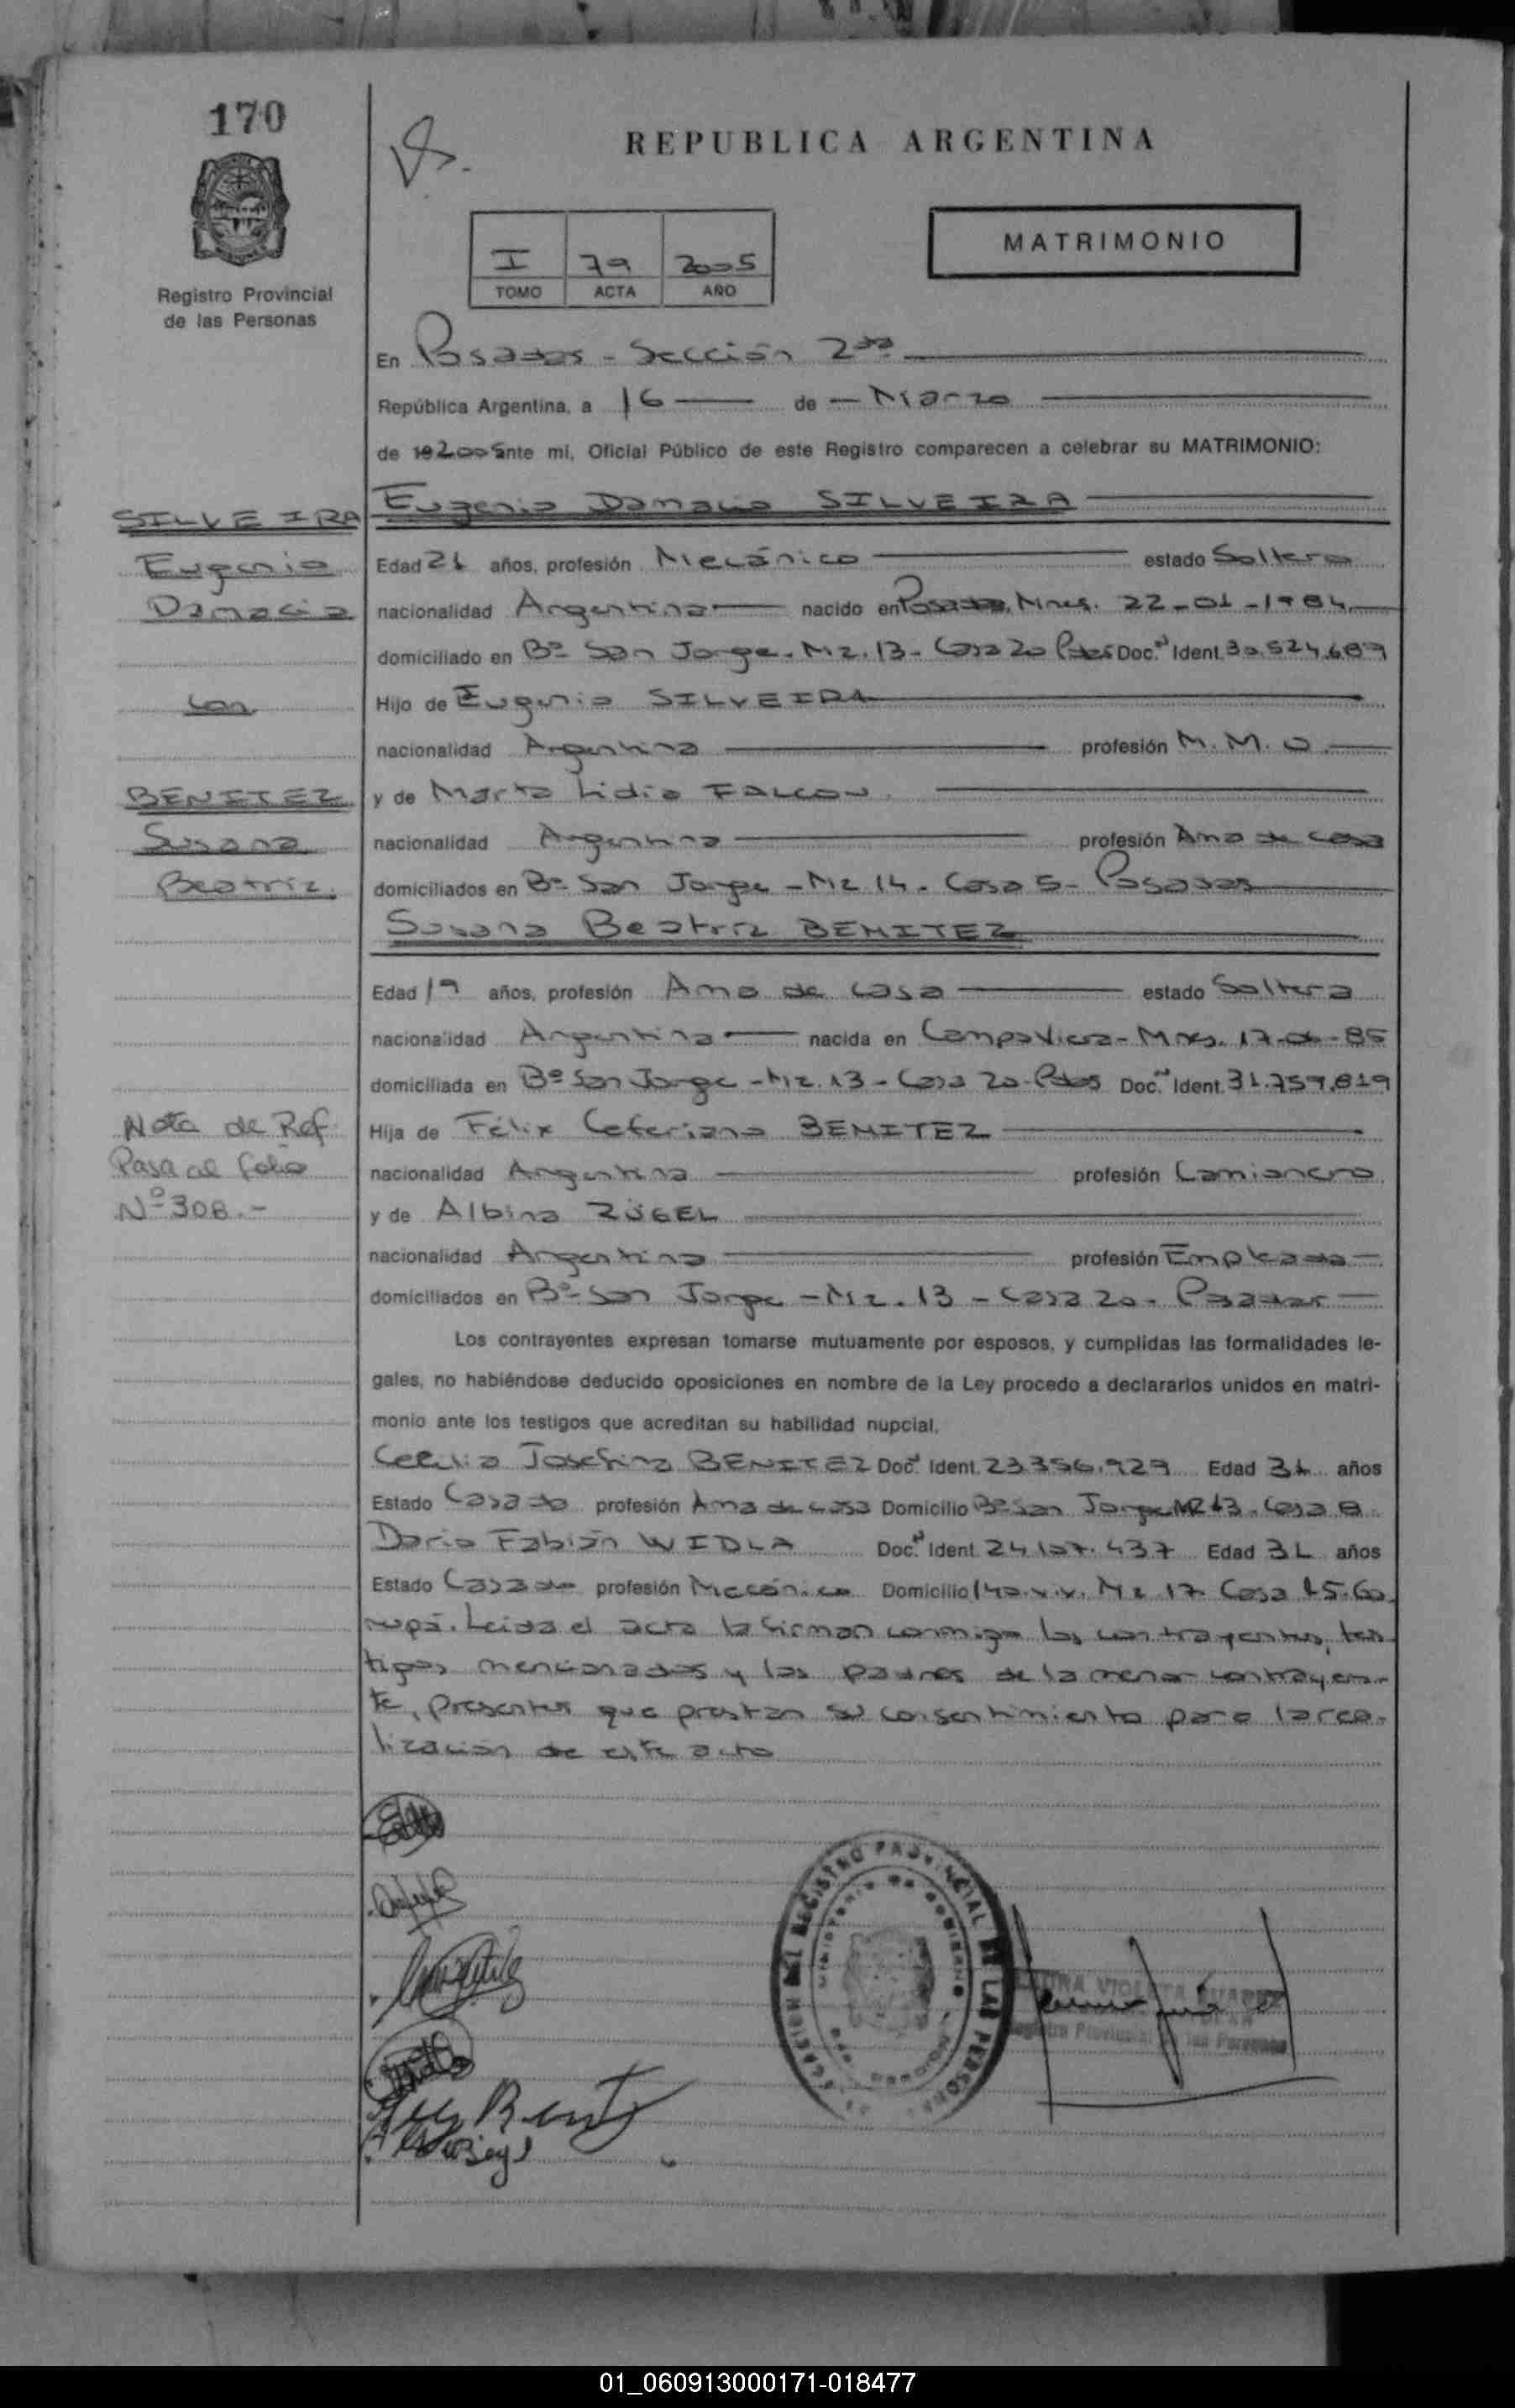 170
REPUBLICA ARGENTINA
MATRIMONIO
I 79 2005
TOMO ACTA AÑO
Registro Provincial
de las Personas
En Posadas - Sección 2da
República Argentina, a 16 de Marzo
de 192005 ante mi, Oficial Público de este Registro comparecen a celebrar su MATRIMONIO:
SILVEIRA
Eugenio
Damacio
con
BENITEZ
Susana
Beatriz.
Nota de Ref
Pasa al folio
Nº 308.-
Eugenio Damacio SILVEIRA
Edad 21 años, profesión Mecánico estado Soltero
nacionalidad Argentina nacido en Posadas, Mnes. 22-01-1984
domiciliado en Bº San Jorge - Mz. 13 - Casa 20 Pdas Doc. Ident. 30.524.689
Hijo de Eugenio SILVEIRA
nacionalidad Argentina profesión M.M.O.
y de Marta Lidia FALCON
nacionalidad Argentina profesión Ama de casa
domiciliados en Bº San Jorge - Mz 14 - Casa 5 - Posadas
Susana Beatriz BENITEZ
Edad 19 años, profesión Ama de casa estado Soltera
nacionalidad Argentina nacida en Campo Viera - Mnes. 85
domiciliada en Bº San Jorge - Mz. 13 - Casa 20 - Pdas Doc. Ident. 31.759.819
Hija de Félix Ceferiano BENITEZ
nacionalidad Argentina profesión Camionero
y de Albina ZÜGEL
nacionalidad Argentina profesión Empleada
domiciliados en Bº San Jorge - Mz. 13 - Casa 20 - Posadas
Los contrayentes expresan tomarse mutuamente por esposos, y cumplidas las formalidades le-
gales, no habiéndose deducido oposiciones en nombre de la Ley procedo a declararlos unidos en matri-
monio ante los testigos que acreditan su habilidad nupcial,
Cecilia Josefina BENITEZ Doc. Ident. 23.356.929 Edad 31 años
Estado Casada profesión Ama de casa Domicilio Bº San Jorge Mz 13 - Casa 8
Dario Fabián WIDLA Doc. Ident. 24.107.437 Edad 31 años
Estado Casado profesión Mecánico Domicilio 140.viv. Mz 17. Casa 15. Ga
rupá. Leida el acta la firman conmigo los contrayentes, tes
tigos mencionados y los padres de la menor contrayen-
te, presentes que prestan su consentimiento para la rea-
lización de este acto
REGISTRO PROVINCIAL DE LAS PERSONAS
Registro Provincial de las Personas
01_060913000171-018477